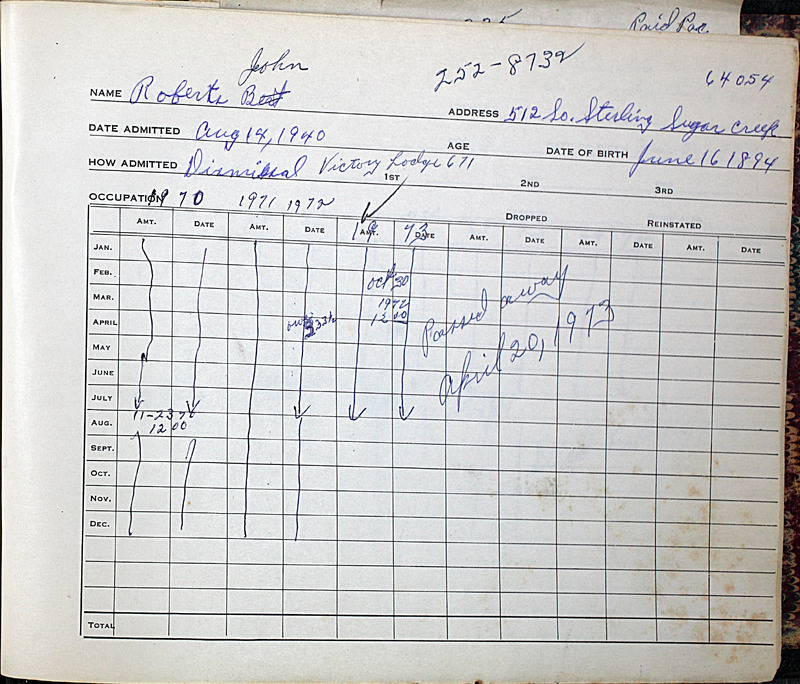 Paid Pac.
John
252-8732
64054
NAME Roberts Bert
ADDRESS 512 So. Sterling Sugar Creek
DATE ADMITTED Aug 14, 1940
AGE
DATE OF BIRTH June 16 1894
HOW ADMITTED Dismissal Victory Lodge 671
1ST 2ND 3RD
OCCUPATION 1970 1971 1972
DROPPED REINSTATED
AMT. DATE AMT. DATE AMT. DATE AMT. DATE AMT. DATE AMT. DATE
1973
JAN.
FEB.
Oct 30
MAR.
1972
APRIL
12 00
Passed away
April 20, 1973
MAY
JUNE
JULY
11-23-70
AUG.
12 00
SEPT.
OCT.
NOV.
DEC.
TOTAL